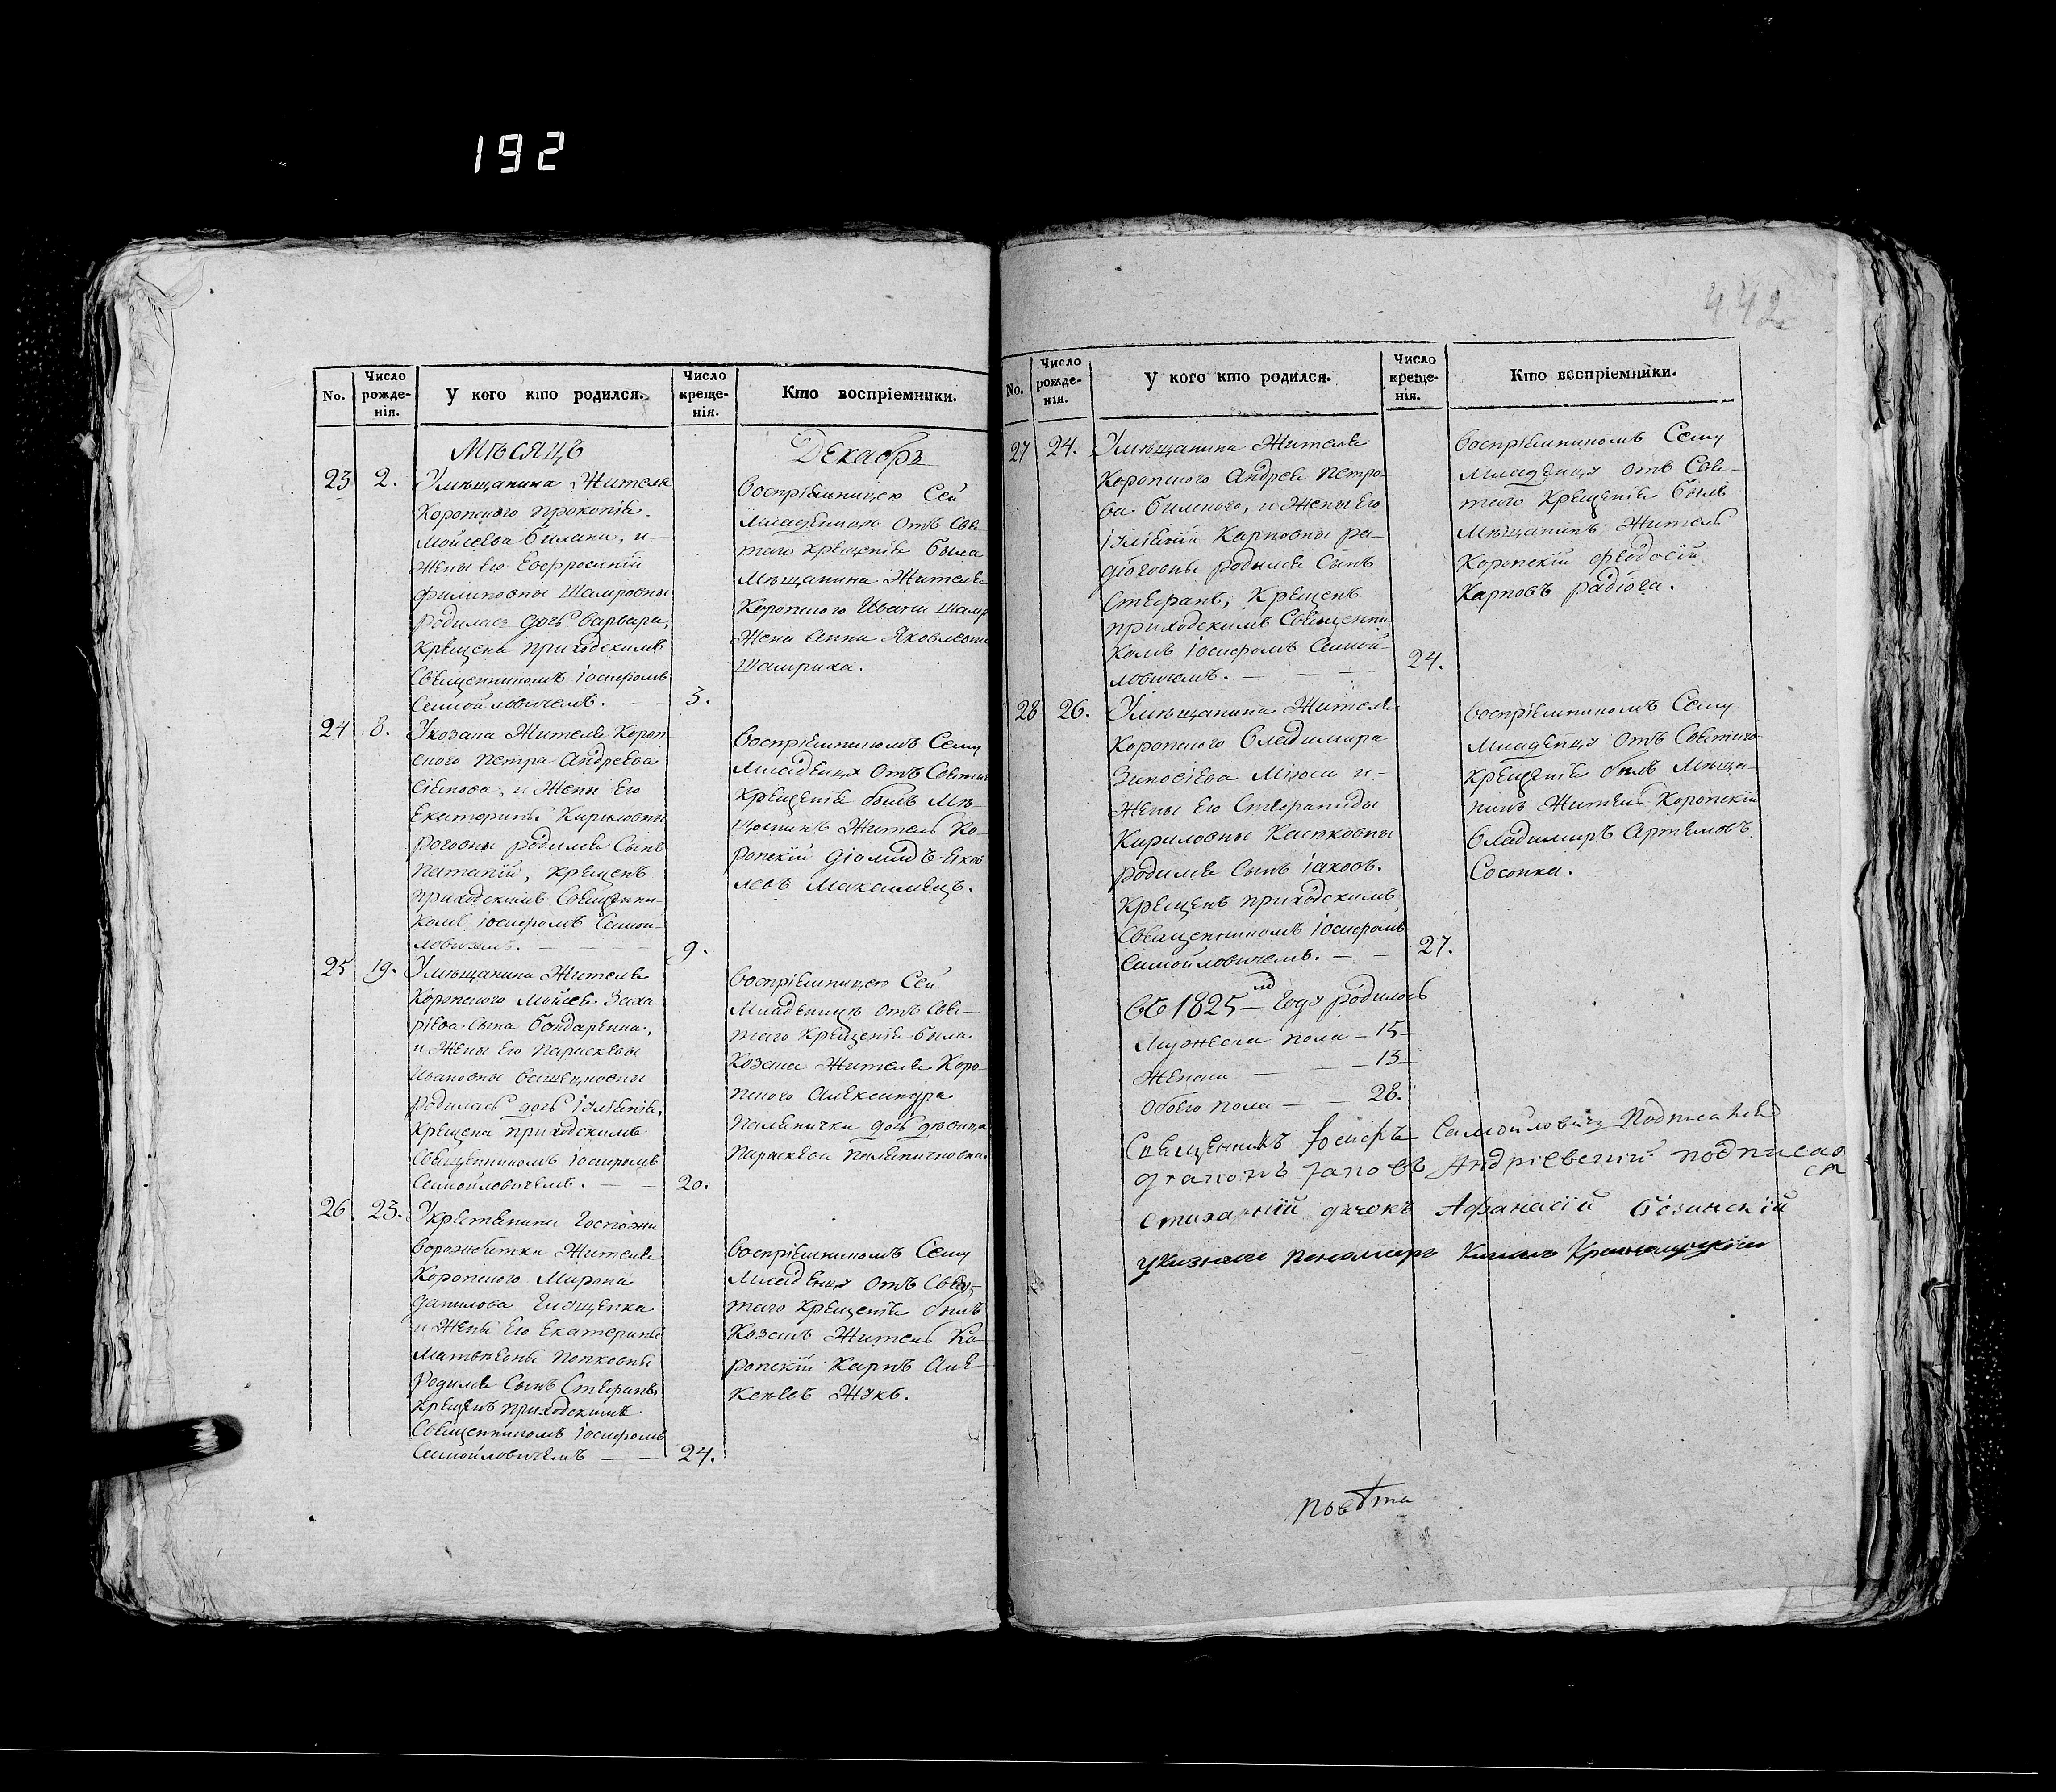 192
442
No.
Число рожде-нія.
У кого кто родился.
Число креще-нія.
Кто воспріемники.
Мѣсяцъ
Декабрь
23
2.
Умѣщанина Жителя
Коропского Прокопія
Мойсеева Билана, и-
Жены Его Евфросиніи
Филиповны Шамровны
родилась дочь Варвара,
Крещена приходскимъ
Священникомъ Іосифомъ
Самойловичемъ. — —
3.
Воспріемницею Сей
Младеницы отъ Свя-
таго Крещенія была
Мѣщанина Жителя
Коропского Ивана Шамр
Жена Анна Яковлевна
Шамриха.
24
8.
Укозака Жителя Короп-
ского Петра Андреева
и Жены Его
Екатерины Кириловны
Роговны родился Сынъ
крещенъ
приходскимъ Священни-
комъ Іосифомъ Самой-
ловичемъ. — — —
9.
Воспріемникомъ Сему
Младенцу отъ Святаго
Крещенія былъ Мѣ-
щанинъ Житель Ко-
ропскій Діомидъ Яков-
левъ Максимецъ.
25
19.
Умѣщанина Жителя
Коропского Мойсея Заха-
ріева Сына Бондаренка,
и Жены Его Параскевы
Ивановны
родилась дочь Іуліанія,
Крещена приходскимъ
Священникомъ Іосифомъ
Самойловичемъ. — —
20.
Воспріемницею Сей
Младеницы отъ Свя-
таго Крещенія была
Козака Жителя Коро-
пского Александра
Палянички дочь дѣвица
Параскева Паляничковна.
26
23.
Укрестьянина Госпожи
Ворожбитки Жителя
Коропского Мирона
Данилова Глущенка
и Жены Его Екатерины
Матвѣевны Попковны
родился Сынъ Стефанъ,
Крещенъ приходскимъ
Священникомъ Іосифомъ
Самойловичемъ — —
24.
Воспріемникомъ Сему
Младенцу отъ Свя-
таго Крещенія былъ
Козакъ Житель Ко-
ропскій Карпъ Але-
ксѣевъ Жукъ.
No.
Число рожде-нія.
У кого кто родился.
Число креще-нія.
Кто воспріемники.
27
24.
Умѣщанина Жителя
Коропского Андрея Петро-
ва Билского, и Жены Его
Іуліаніи Карповны Ра-
діоговны родился Сынъ
Стефанъ, Крещенъ
приходскимъ Священни-
комъ Іосифомъ Самой-
ловичемъ. — — —
24.
Воспріемникомъ Сему
Младенцу отъ Свя-
таго Крещенія былъ
Мѣщанинъ Житель
Коропскій Феодосій
Карповъ Радіога.
28
26.
Умѣщанина Жителя
Коропского Владимира
Зиновіева и-
Жены Его Стефаниды
Кириловны
родился Сынъ Іаковъ.
Крещенъ приходскимъ
Священникомъ Іосифомъ
Самойловичемъ. — —
27.
Воспріемникомъ Сему
Младенцу отъ Святаго
Крещенія былъ Мѣща-
нинъ Житель Коропскій
Владимиръ Артемовъ
Сосонка.
Въ 1825 — мъ Году родилось
Мужеска пола — 15 —
Женска — — — 13 —
Обоего пола — — 28.
Священникъ Іосифъ Самойловичъ Подписался
Андріевскій подписал
ся
Стихарній дячокъ Афанасій
Указный пономарь
Повѣта